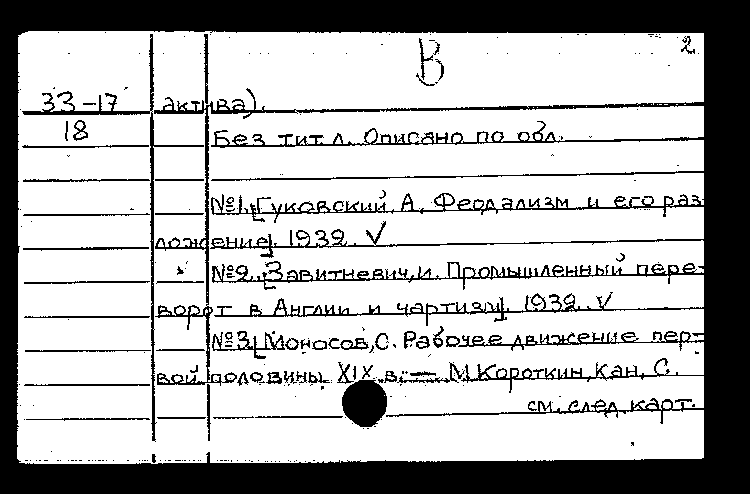 В 2
33-17 актива).
18 Без тит л. Описано по обл.
№1. [Гуковский, А. Феодализм и его раз-
ложение]. 1932. V
№2. [Завитневич, И. Промышленный пере-
ворот в Англии и чартизм]. 1932. V
№3. [Моносов, С. Рабочее движение пер-
вой половины XIX в. — М. Короткин, Кан, С.
см. след. карт.